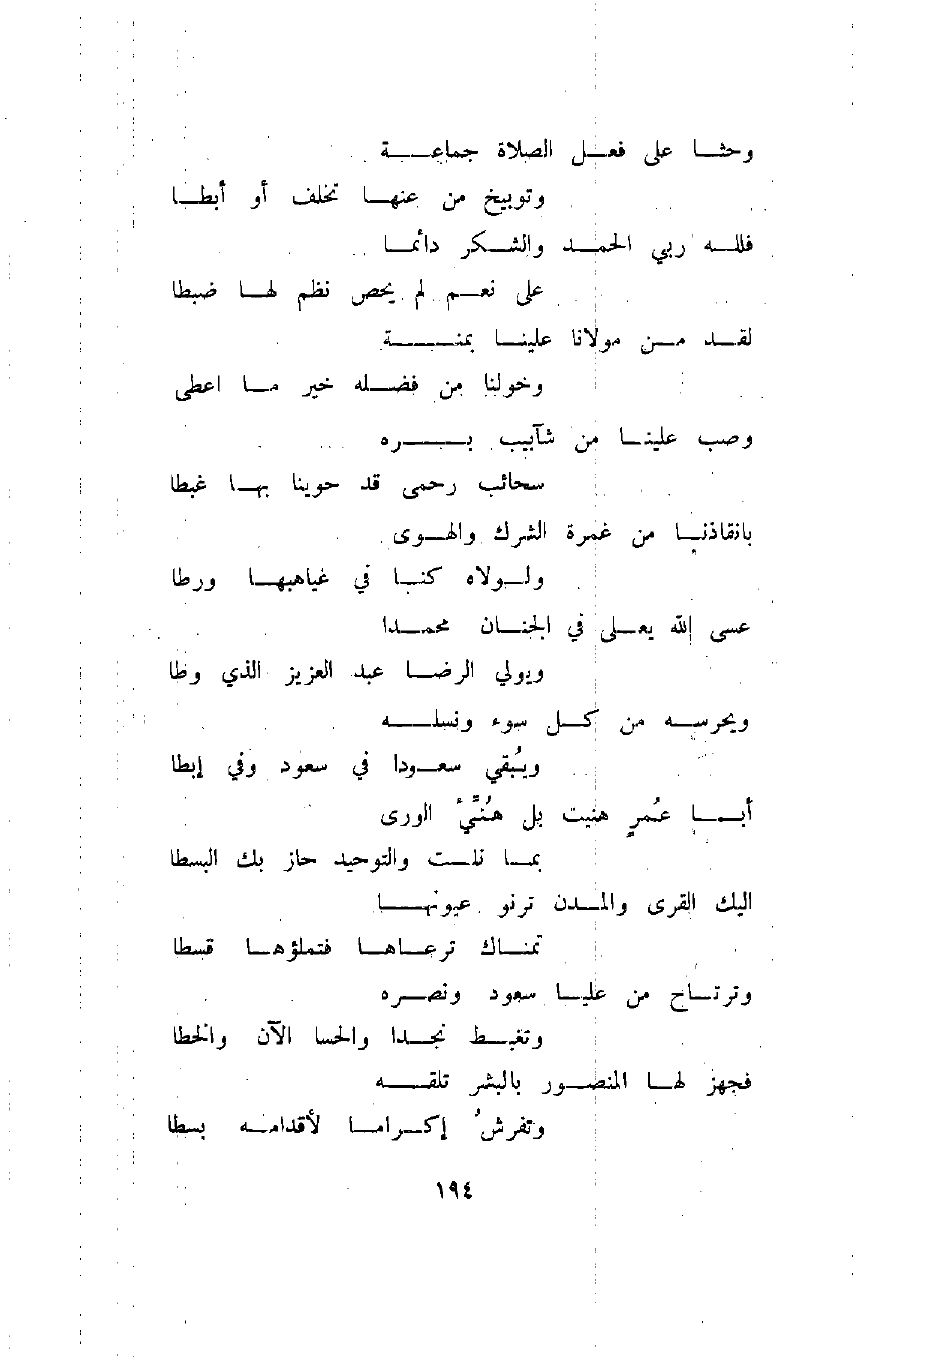 وحثا على فعل الصلاة جماعة
وتوبيخ من عنها تخلف أو أبطا
فلله ربي الحمد والشكر دائما
على نعم لم يحص نظم لها ضبطا
لقد من مولانا علينا بمنة
وخولنا من فضله خير ما اعطى
وصب علينا من شآبيب بره
سحائب رحمى قد حوينا بها غبطا
بانقاذنا من غمرة الشرك والهوى
ولولاه كنا في غياهبها ورطا
عسى الله يعلى في الجنان محمدا
ويولي الرضا عبد العزيز الذي وطا
ويحرسه من كل سوء ونسله
ويُبقي سعودا في سعود وفي إبطا
أبا عُمرٍ هنيت بل هُنِّيَ الورى
بما نلت والتوحيد حاز بك البسطا
اليك القرى والمدن ترنو عيونها
تمناك ترعاها فتملؤها قسطا
وترتاح من عليا سعود ونصره
وتغبط نجدا والحسا الآن والخطا
فجهز لها المنصور بالبشر تلقه
وتفرشُ إكراما لأقدامه بسطا
١٩٤